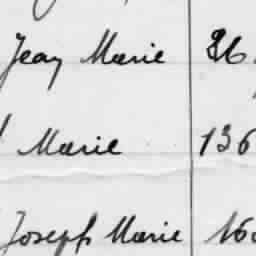 Jean Marie 26
Marie 136
Joseph Marie 160